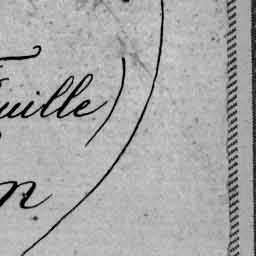 uille)
n